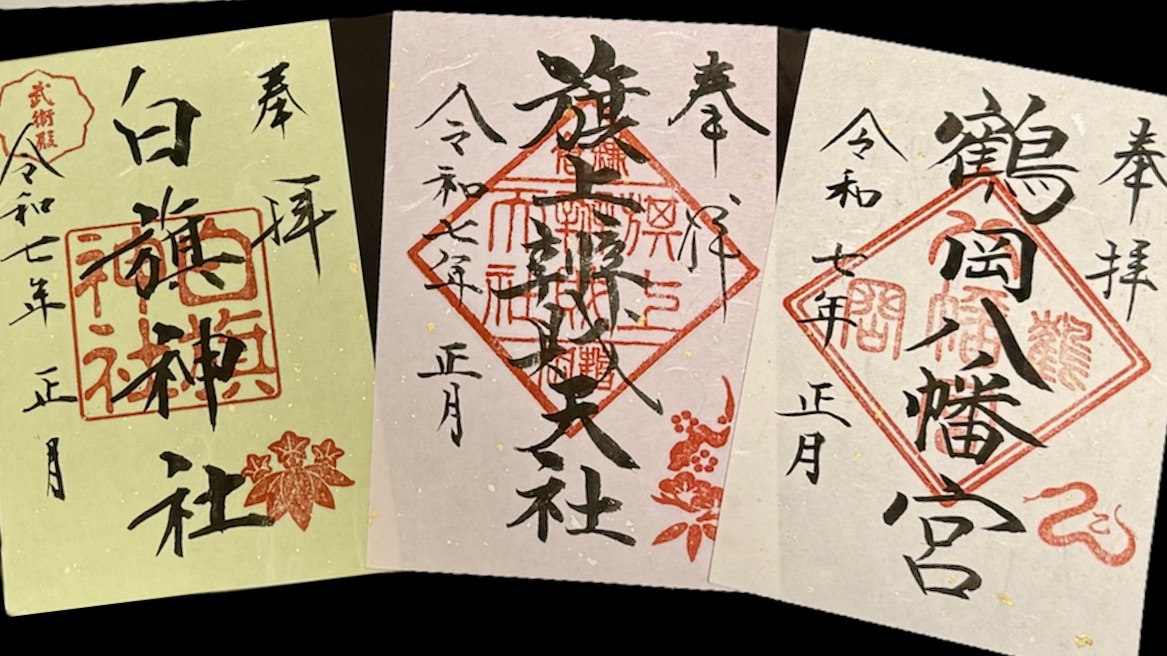 奉拝
鶴岡八幡宮
令和七年 正月
奉拝
旗上辨財天社
旗上
天社
令和七年 正月
奉拝
白旗神社
白旗
神社
武衛殿
令和七年 正月